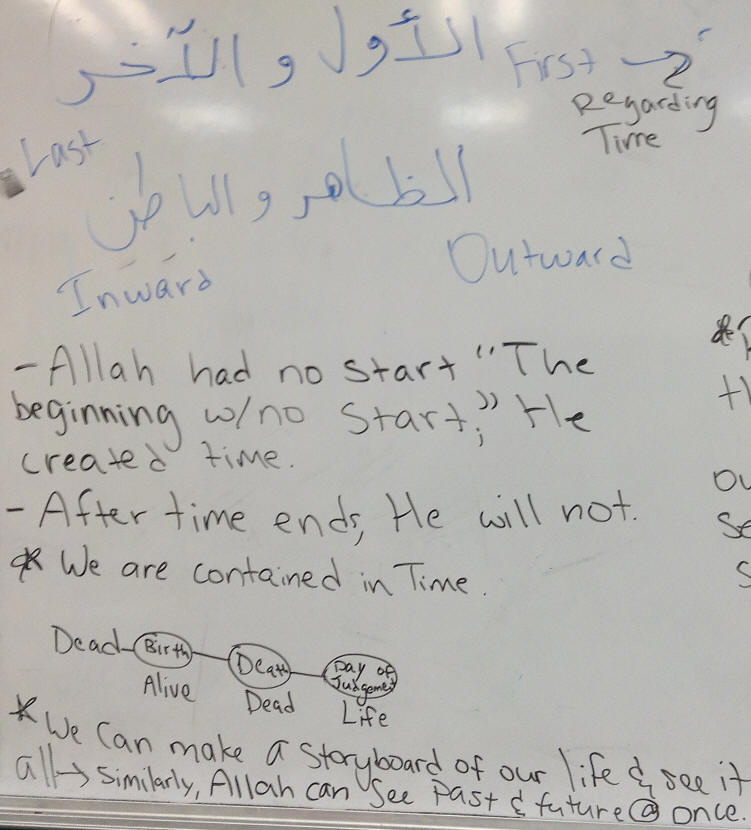 الأول و الآخر First →
Regarding
Time
Last
الظاهر و الباطن
Inward Outward
- Allah had no start "The
beginning w/no start;" He
created time.
- After time ends, He will not.
* We are contained in Time.
Dead - Birth - Death - Day of
Judgement
Alive Dead Life
* We can make a storyboard of our life & see it
all → similarly, Allah can see Past & future @ once.